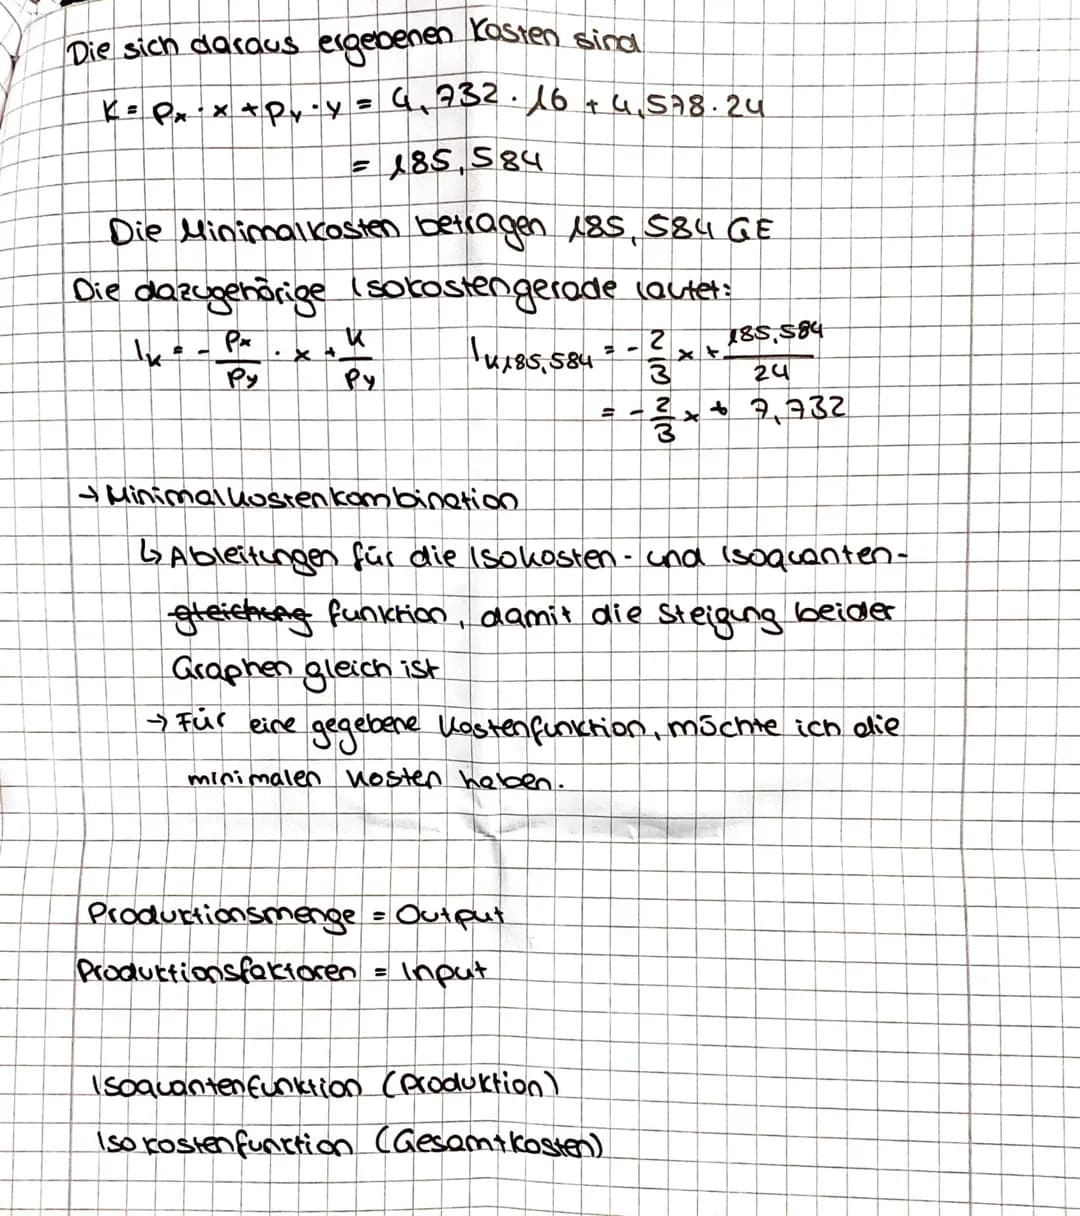 Die sich daraus ergebenen Kosten sind
K = Px · x + Py · y = 4,732 · 16 + 4,578 · 24
= 185,584
Die Minimalkosten betragen 185,584 GE
Die dazugehörige Isokostengerade lautet:
Ik = - Px/Py · x + K/Py    Ik185,584 = - 2/3 x + 185,584/24
= - 2/3 x + 7,732
→ Minimalkostenkombination
↳ Ableitungen für die Isokosten- und Isoquanten-
gleichung funktion, damit die Steigung beider
Graphen gleich ist
→ Für eine gegebene Kostenfunktion, möchte ich die
minimalen Kosten haben.
Produktionsmenge = Output
Produktionsfaktoren = Input
Isoquantenfunktion (Produktion)
Isokostenfunction (Gesamtkosten)